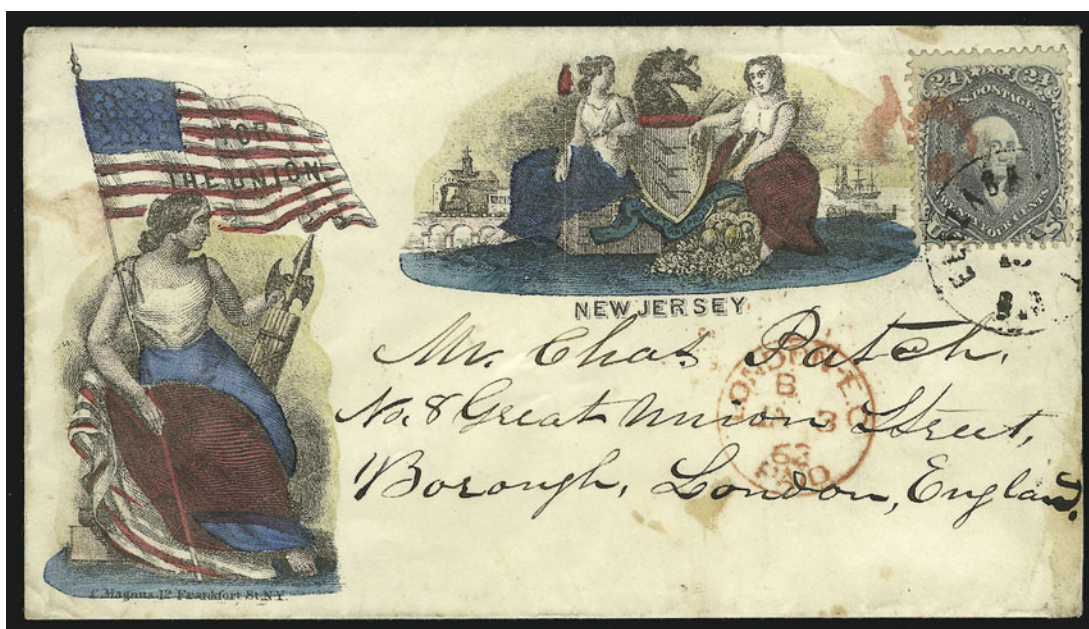 FOR
THE UNION
NEW JERSEY
24 24
U.S. POSTAGE
TWENTY FOUR CENTS
Mr. Chas Patch,
No. 8 Great Union Street,
Borough, London, England.
LONDON E.C
B
3
62
PAID
C. Magnus 12 Frankfort St. N.Y.